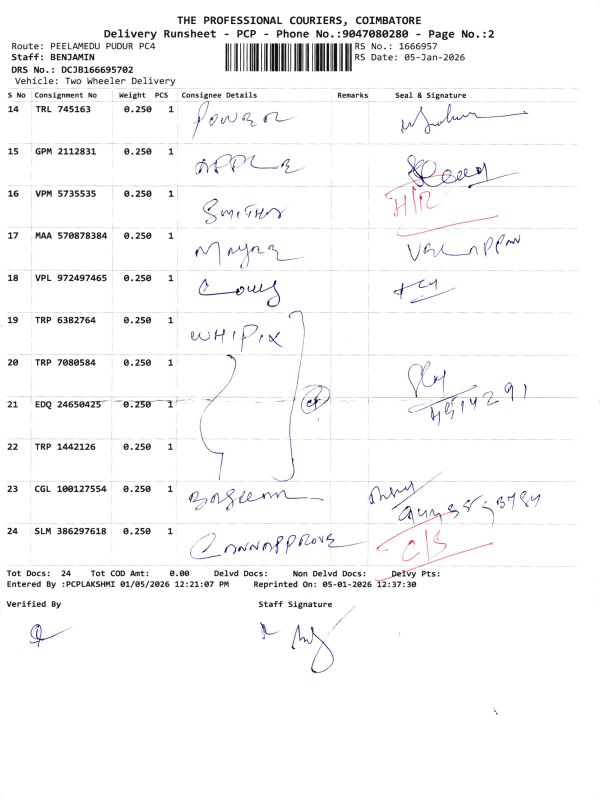 THE PROFESSIONAL COURIERS, COIMBATORE
Delivery Runsheet - PCP - Phone No.:9047080280 - Page No.:2
Route: PEELAMEDU PUDUR PC4 RS No.: 1666957
Staff: BENJAMIN RS Date: 05-Jan-2026
DRS No.: DCJB166695702
Vehicle: Two Wheeler Delivery
S No Consignment No Weight PCS Consignee Details Remarks Seal & Signature
14 TRL 745163 0.250 1 POWER
15 GPM 2112831 0.250 1 APPLE
16 VPM 5735535 0.250 1 SMITHS H/R
17 MAA 570878384 0.250 1
18 VPL 972497465 0.250 1
19 TRP 6382764 0.250 1 WHIPIX
20 TRP 7080584 0.250 1
21 EDQ 24650425 0.250 1
22 TRP 1442126 0.250 1
23 CGL 100127554 0.250 1
24 SLM 386297618 0.250 1 CANNAPPROVE C/S
Tot Docs: 24 Tot COD Amt: 0.00 Delvd Docs: Non Delvd Docs: Delvy Pts:
Entered By :PCPLAKSHMI 01/05/2026 12:21:07 PM Reprinted On: 05-01-2026 12:37:30
Verified By Staff Signature